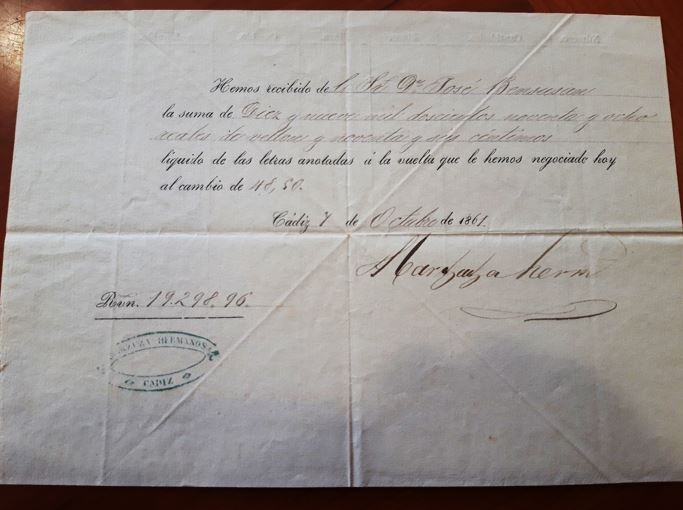 Hemos recibido del Sr. Dn. José Bensusan
la suma de Diez y nueve mil doscientos noventa y ocho
reales de vellon y noventa y seis céntimos
líquido de las letras anotadas á la vuelta que le hemos negociado hoy
al cambio de 48,50.
Cádiz 7 de Octubre de 1861.
Marzuza herms
Rvn. 19.298.96
MARZUZA HERMANOS
CADIZ